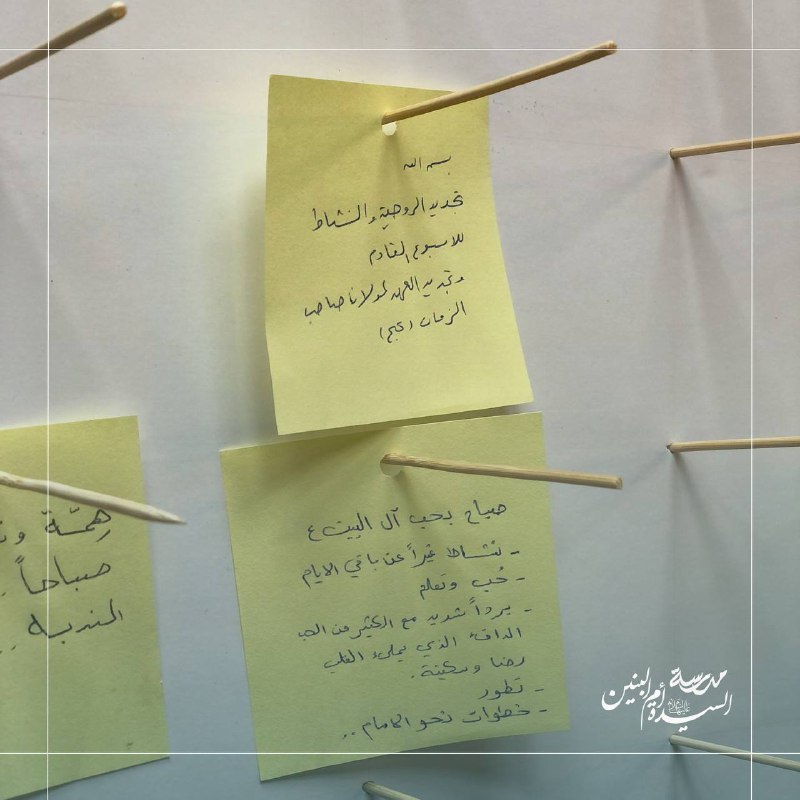 بسم الله
تجديد الروحية والنشاط
للاسبوع القادم
وتجديد العهد لمولانا صاحب
الزمان (عج)
صباح بحب آل البيت ع
- نشاط غيراً عن باقي الايام
- حُب وتعلم
- برداً شديد مع الكثير من الحب
الدافئ الذي يملىء القلب
رضا وسكينة.
- تطور
- خطوات نحو الامام ..
هِمّة
صباحاً
الندبة ..
مدرسة
السيدة أم البنين